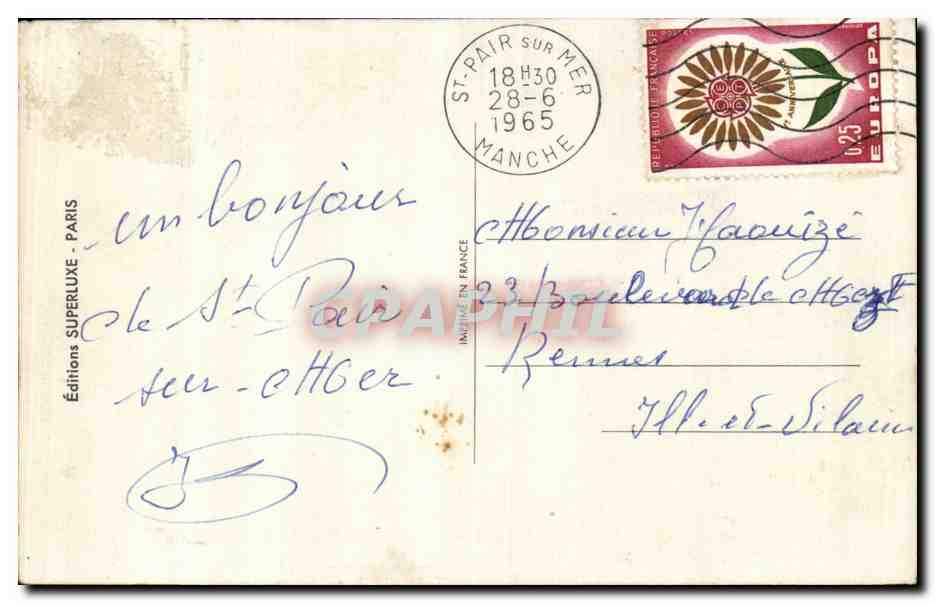 ST-PAIR SUR MER
18H30
28-6
1965
MANCHE
REPUBLIQUE FRANCAISE
POSTES
CEPT
5e ANNIVERSAIRE
0,25
EUROPA
Éditions SUPERLUXE - PARIS
un bonjour
de St Pair
sur-Mer
IMPRIMÉ EN FRANCE
CPAPHIL
Monsieur
23 Boulevard de
Rennes
Ille-et-Vilaine